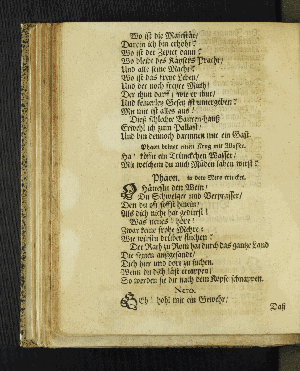 Wo ist die Majestät/
Darein ich bin erhöht?
Wo ist der Zepter dann?
Wo bleibt des Käysers Pracht/
Und alle seine Macht?
Wo ist das freye Leben/
Und der noch freyre Muth/
Der thun darff/ wie er thut/
Und keinerley Gesetz ist untergeben?
Mit mir ist alles aus!
Diß schlechte Bauren-Hauß
Erwehl ich zum Pallast/
Und bin dennoch darinnen nur ein Gast.
Phaon bringt einen Krug mit Wasser.
Ha! köstlich Trünckchen Wasser/
Mit welchem du mich Müden laben wirst?
Phaon.
Hättestu den Wein/
Du Schwelger und Verprasser/
Den du offt soffst hinein/
Als dich nicht hat gedürst!
Was neues! höre!
Zwar keine frohe Mehre:
Wie wirstu drüber fluchen?
Der Rath zu Rom hat durch das gantze Land
Die seinen ausgesandt/
Dich hier und dort zu suchen.
Wenn du dich läst ertappen/
So werden sie dir nach dem Kopfe schnappen.
Nero.
Geh! hohl mir ein Gewehr/
Daß